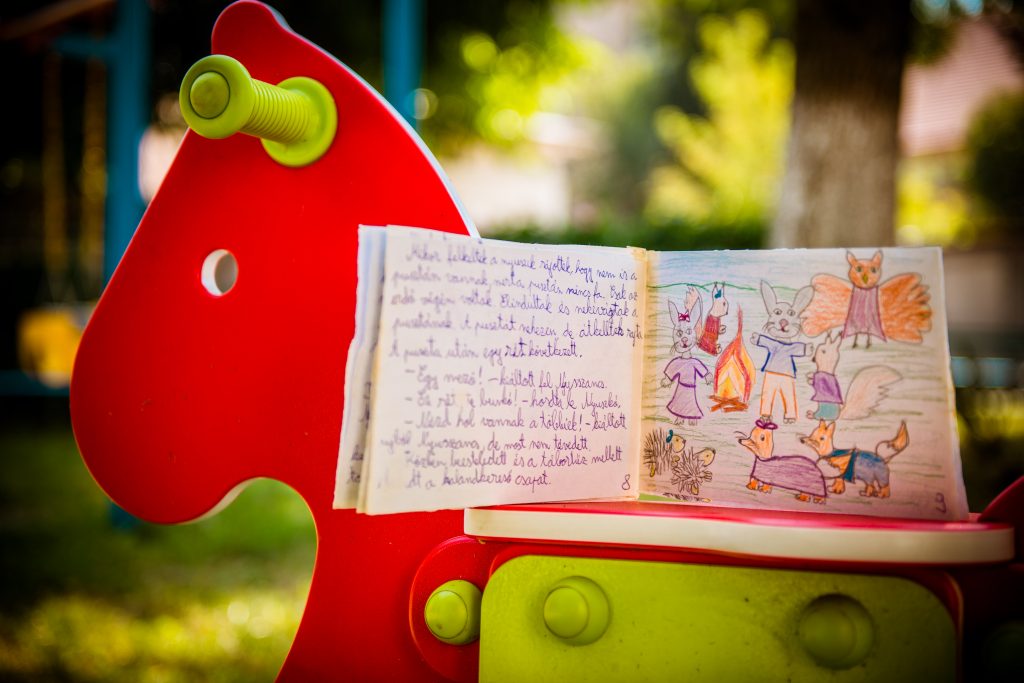 Mikor felkeltek a nyuszik rájöttek, hogy nem is a
pusztán vannak, mert a pusztán nincs fa. Csak az
erdő végén voltak. Elindultak és nekivágtak a
pusztának. A pusztát nehezen de átkeltek rajta
A puszta után egy rét következett.
- Egy mező! - kiáltott fel Nyusszancs.
- Ez rét, te buskó! - hordta le Nyuszkó,
- Nézd hol vannak a többiek! - kiáltott
Nyusszancs, de most nem tévedett.
közben besteledett és a tábortűz mellett
a kalandkereső csapat.
8
9